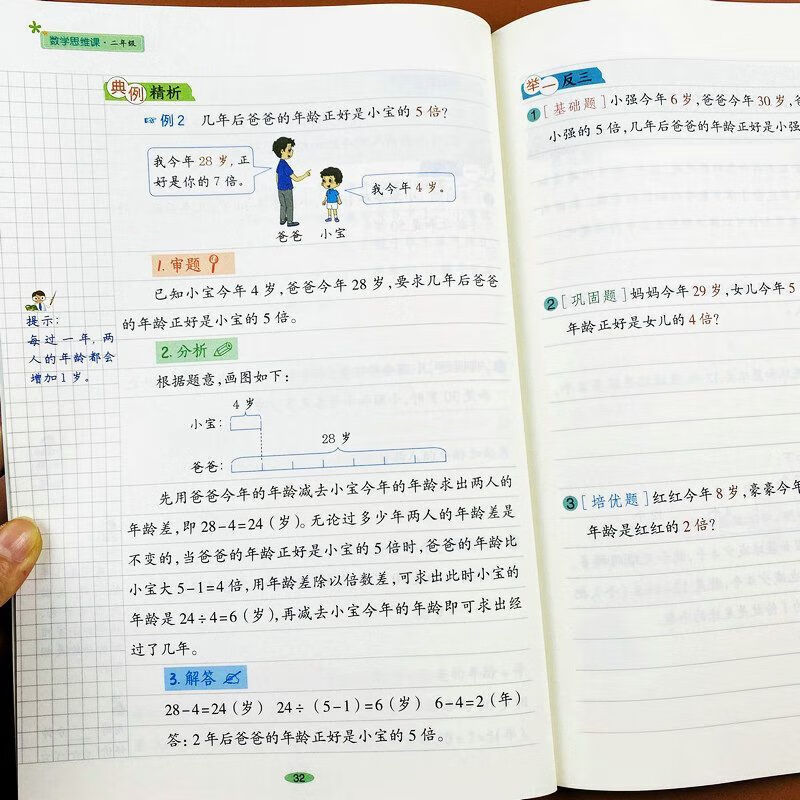 数学思维课·二年级
典例精析
例2 几年后爸爸的年龄正好是小宝的5倍?
我今年28岁,正
好是你的7倍。
我今年4岁。
爸爸 小宝
1.审题
已知小宝今年4岁,爸爸今年28岁,要求几年后爸爸
的年龄正好是小宝的5倍。
提示:
每过一年,两
人的年龄都会
增加1岁。
2.分析
根据题意,画图如下:
4岁
小宝:
28岁
爸爸:
先用爸爸今年的年龄减去小宝今年的年龄求出两人的
年龄差,即28-4=24(岁)。无论过多少年两人的年龄差是
不变的,当爸爸的年龄正好是小宝的5倍时,爸爸的年龄比
小宝大5-1=4倍,用年龄差除以倍数差,可求出此时小宝的
年龄是24÷4=6(岁),再减去小宝今年的年龄即可求出经
过了几年。
3.解答
28-4=24(岁) 24÷(5-1)=6(岁) 6-4=2(年)
答:2年后爸爸的年龄正好是小宝的5倍。
32
举一反三
1[基础题]小强今年6岁,爸爸今年30岁,爸
小强的5倍,几年后爸爸的年龄正好是小强
2[巩固题]妈妈今年29岁,女儿今年5
年龄正好是女儿的4倍?
3[培优题]红红今年8岁,豪豪今年
年龄是红红的2倍?